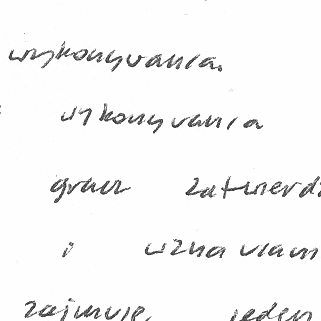 wykonywania.
wykonywania
gracz zatwierdz
i uznawam
zajmuje jeden